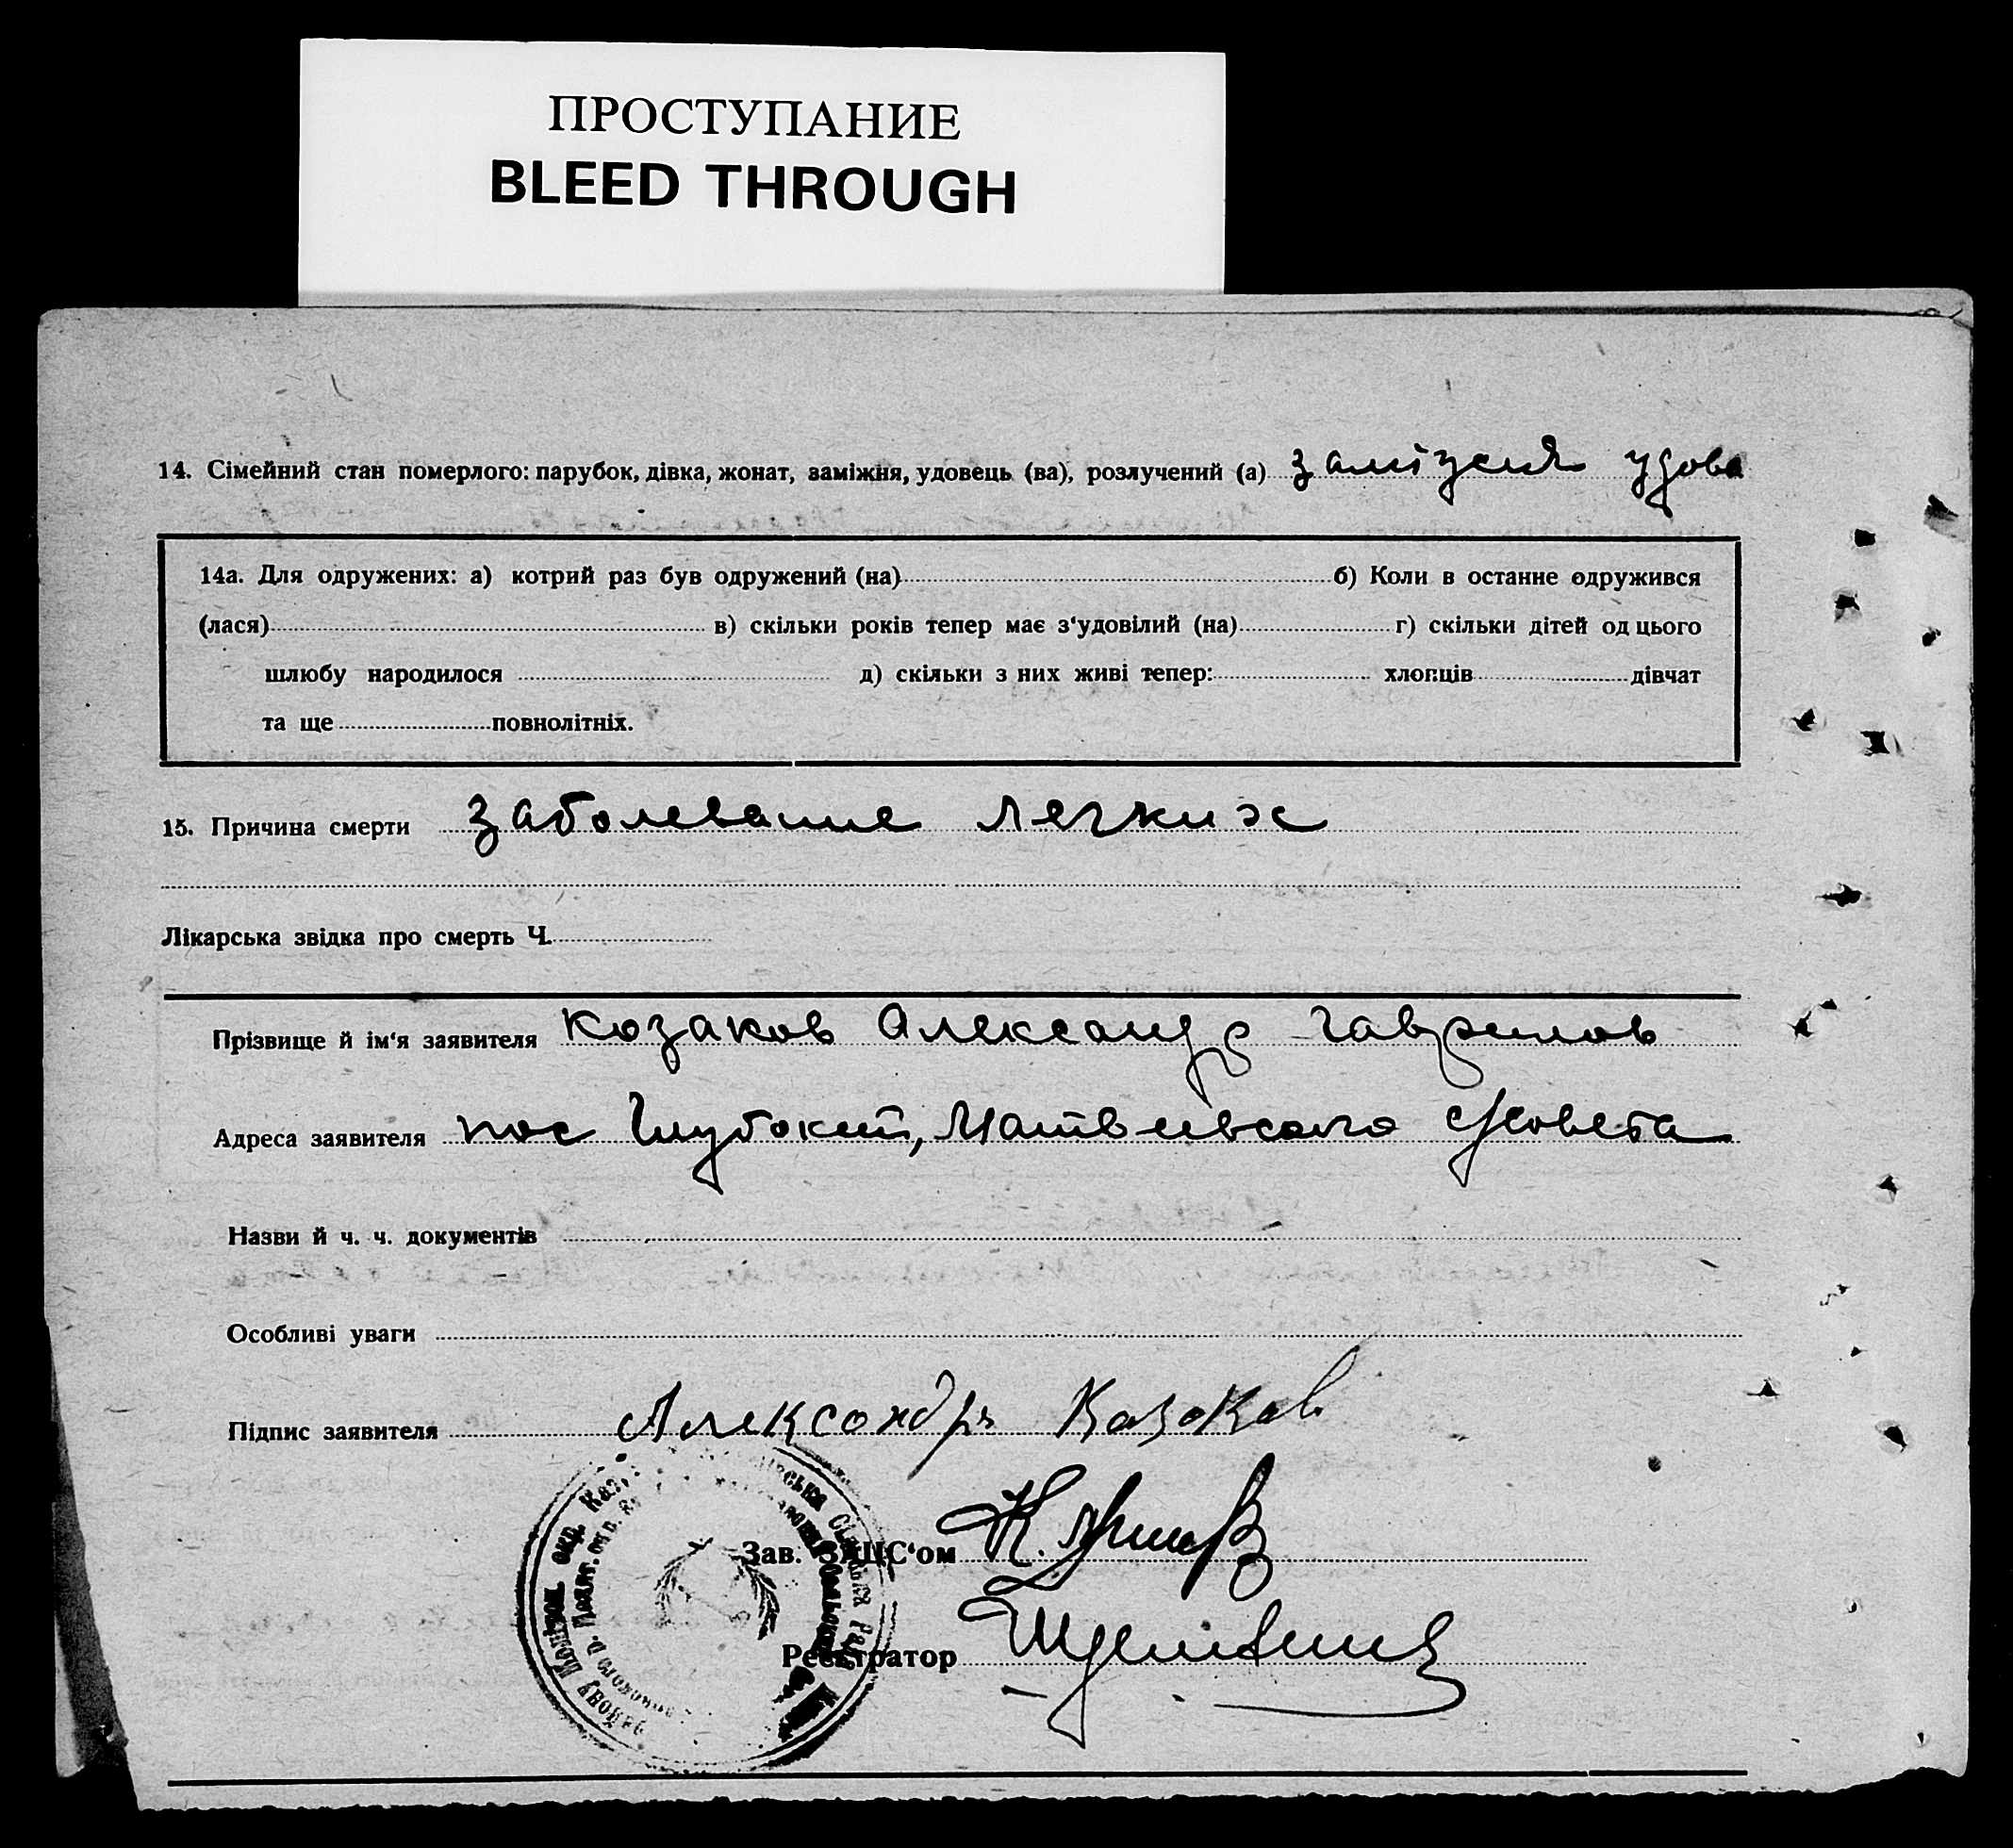 ПРОСТУПАНИЕ
BLEED THROUGH
14. Сімейний стан померлого: парубок, дівка, жонат, заміжня, удовець (ва), розлучений (а) удова
14а. Для одружених: а) котрий раз був одружений (на) б) Коли в останне одружився
(лася) в) скільки років тепер має з‘удовілий (на) г) скільки дітей од цього
шлюбу народилося д) скільки з них живі тепер: хлопців дівчат
та ще повнолітніх.
15. Причина смерти заболевание легких
Лікарська звідка про смерть Ч.
Прізвище й ім‘я заявителя Козаков Александр Гаврилов
Адреса заявителя пос Глубокий, Матвеевского с/совета
Назви й ч. ч. документів
Особливі уваги
Підпис заявителя Александръ Казаков
Зав. ЗАЦС‘ом
Реєстратор